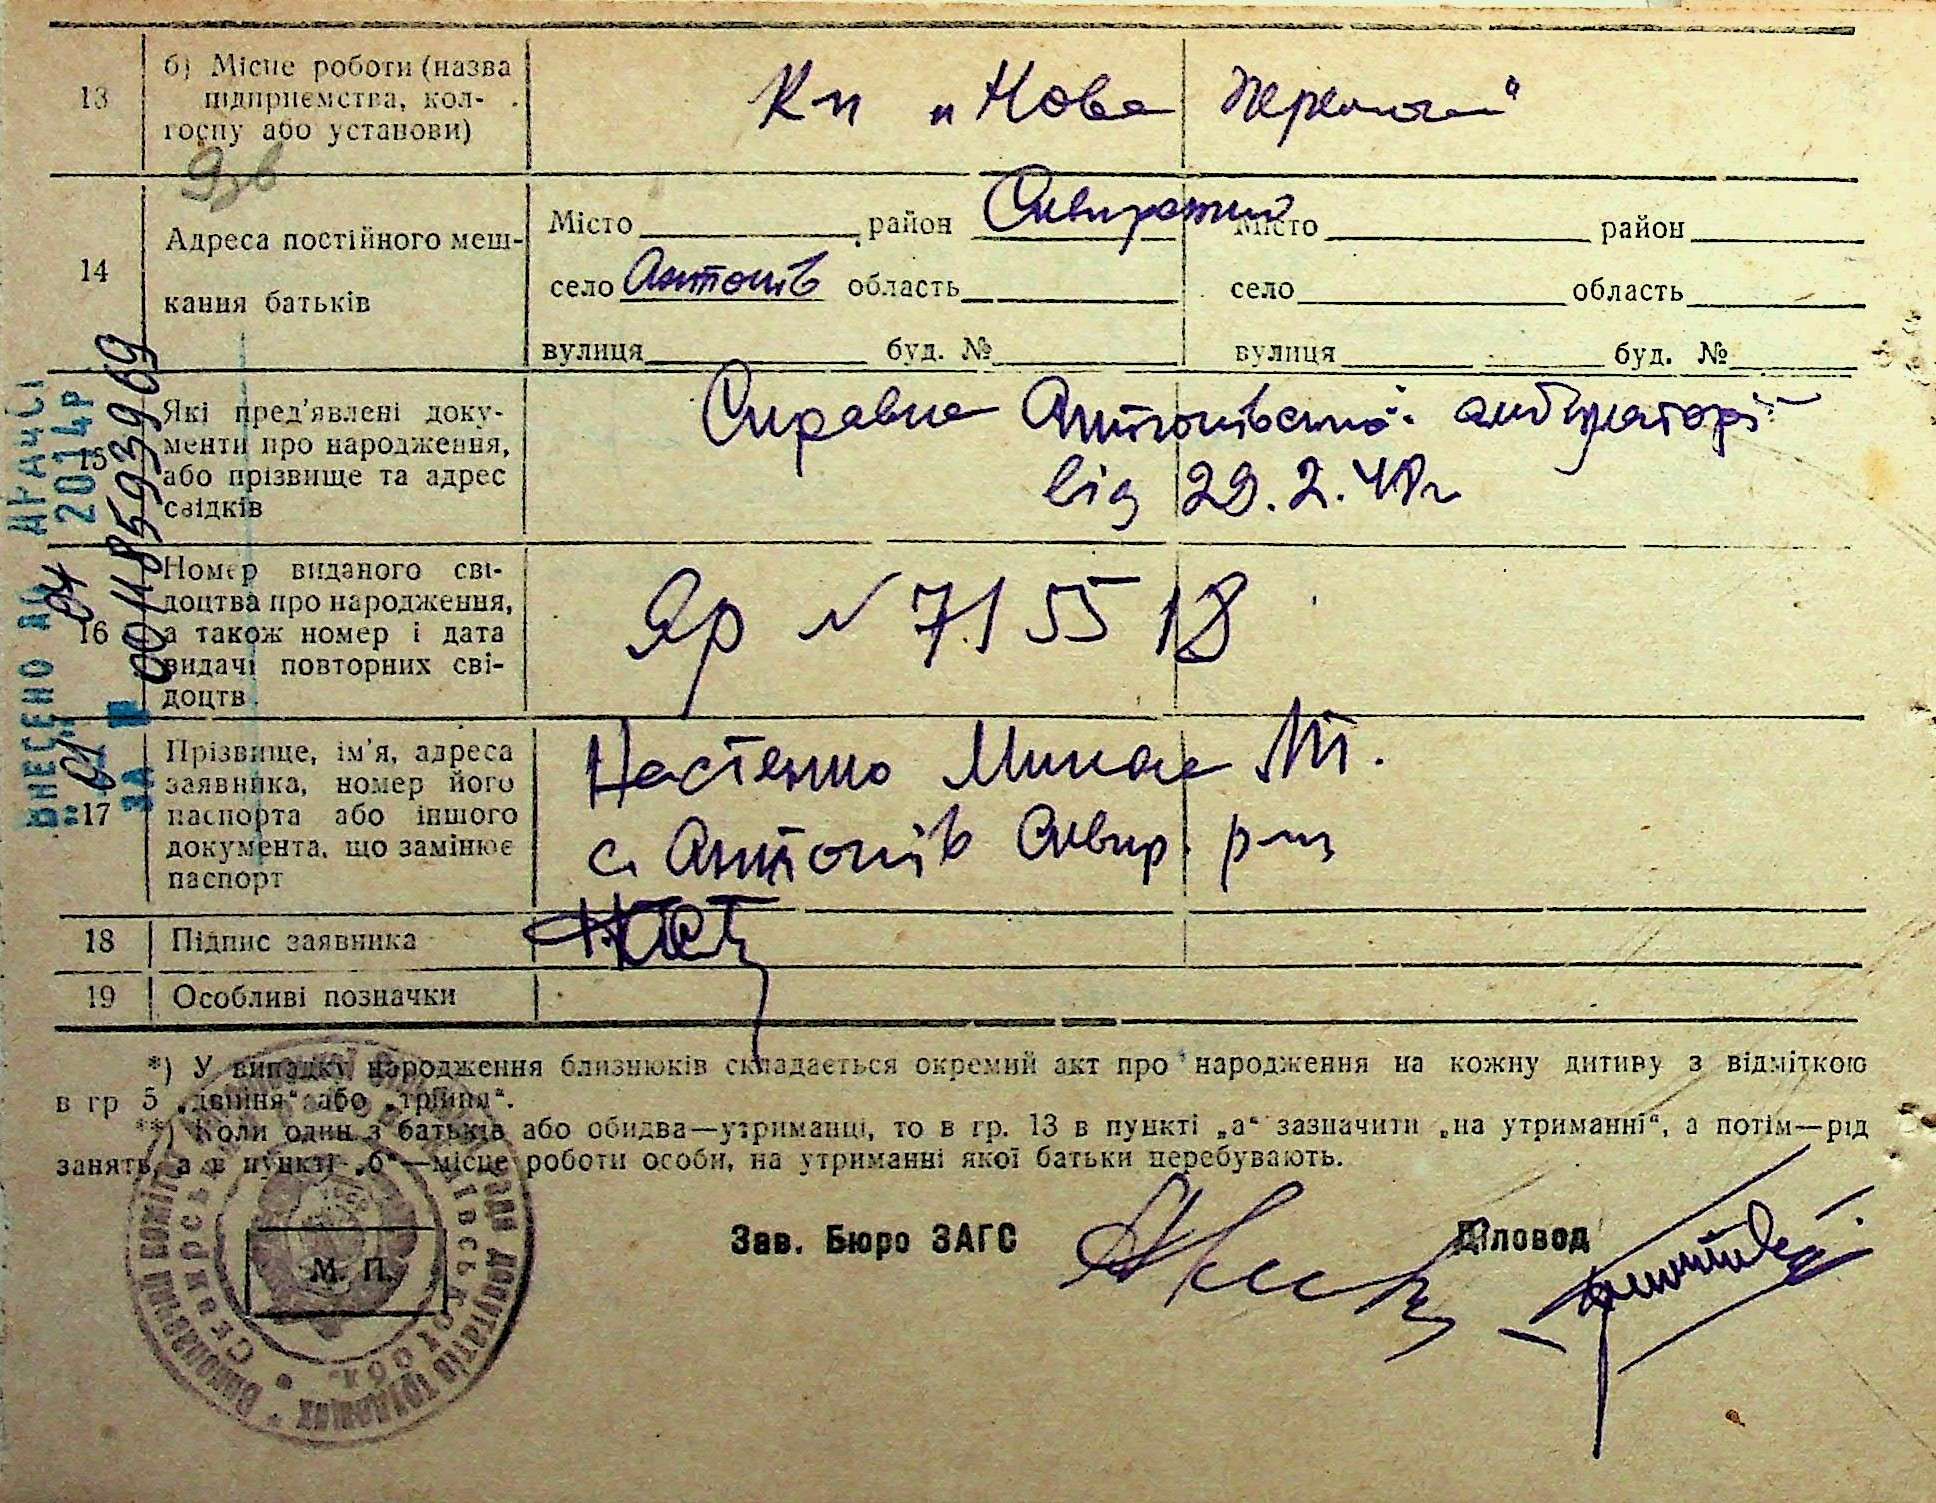 13
б) Місце роботи (назва
підприємства, кол-
госпу або установи)
Кп „Нова Перемога"
14
Адреса постійного меш-
кання батьків
Місто район Сквирський Місто район
село Антонів область село область
вулиця буд. № вулиця буд. №
15
Які пред'явлені доку-
менти про народження,
або прізвище та адрес
свідків
Справка Антонівської амбулаторії
від 29.2.48 г
16
Номер виданого сві-
доцтва про народження,
а також номер і дата
видачі повторних сві-
доцтв
Яр № 715518
17
Прізвище, ім'я, адреса
заявника, номер його
паспорта або іншого
документа, що замінює
паспорт
с. Антонів Сквир. р-ну
18 Підпис заявника
19 Особливі позначки
ВНЕСЕНО ДО ДРАЦСІ
01 04 2014р
ЗА № 00118593969
*) У випадку народження близнюків складається окремий акт про народження на кожну дитину з відміткою
в гр 5 „двійня“ або „трійня“.
**) Коли один з батьків або обидва—утриманці, то в гр. 13 в пункті „а“ зазначити „на утриманні“, а потім—рід
занять, а в пункті „б“—місце роботи особи, на утриманні якої батьки перебувають.
М. П.
Зав. Бюро ЗАГС
Діловод